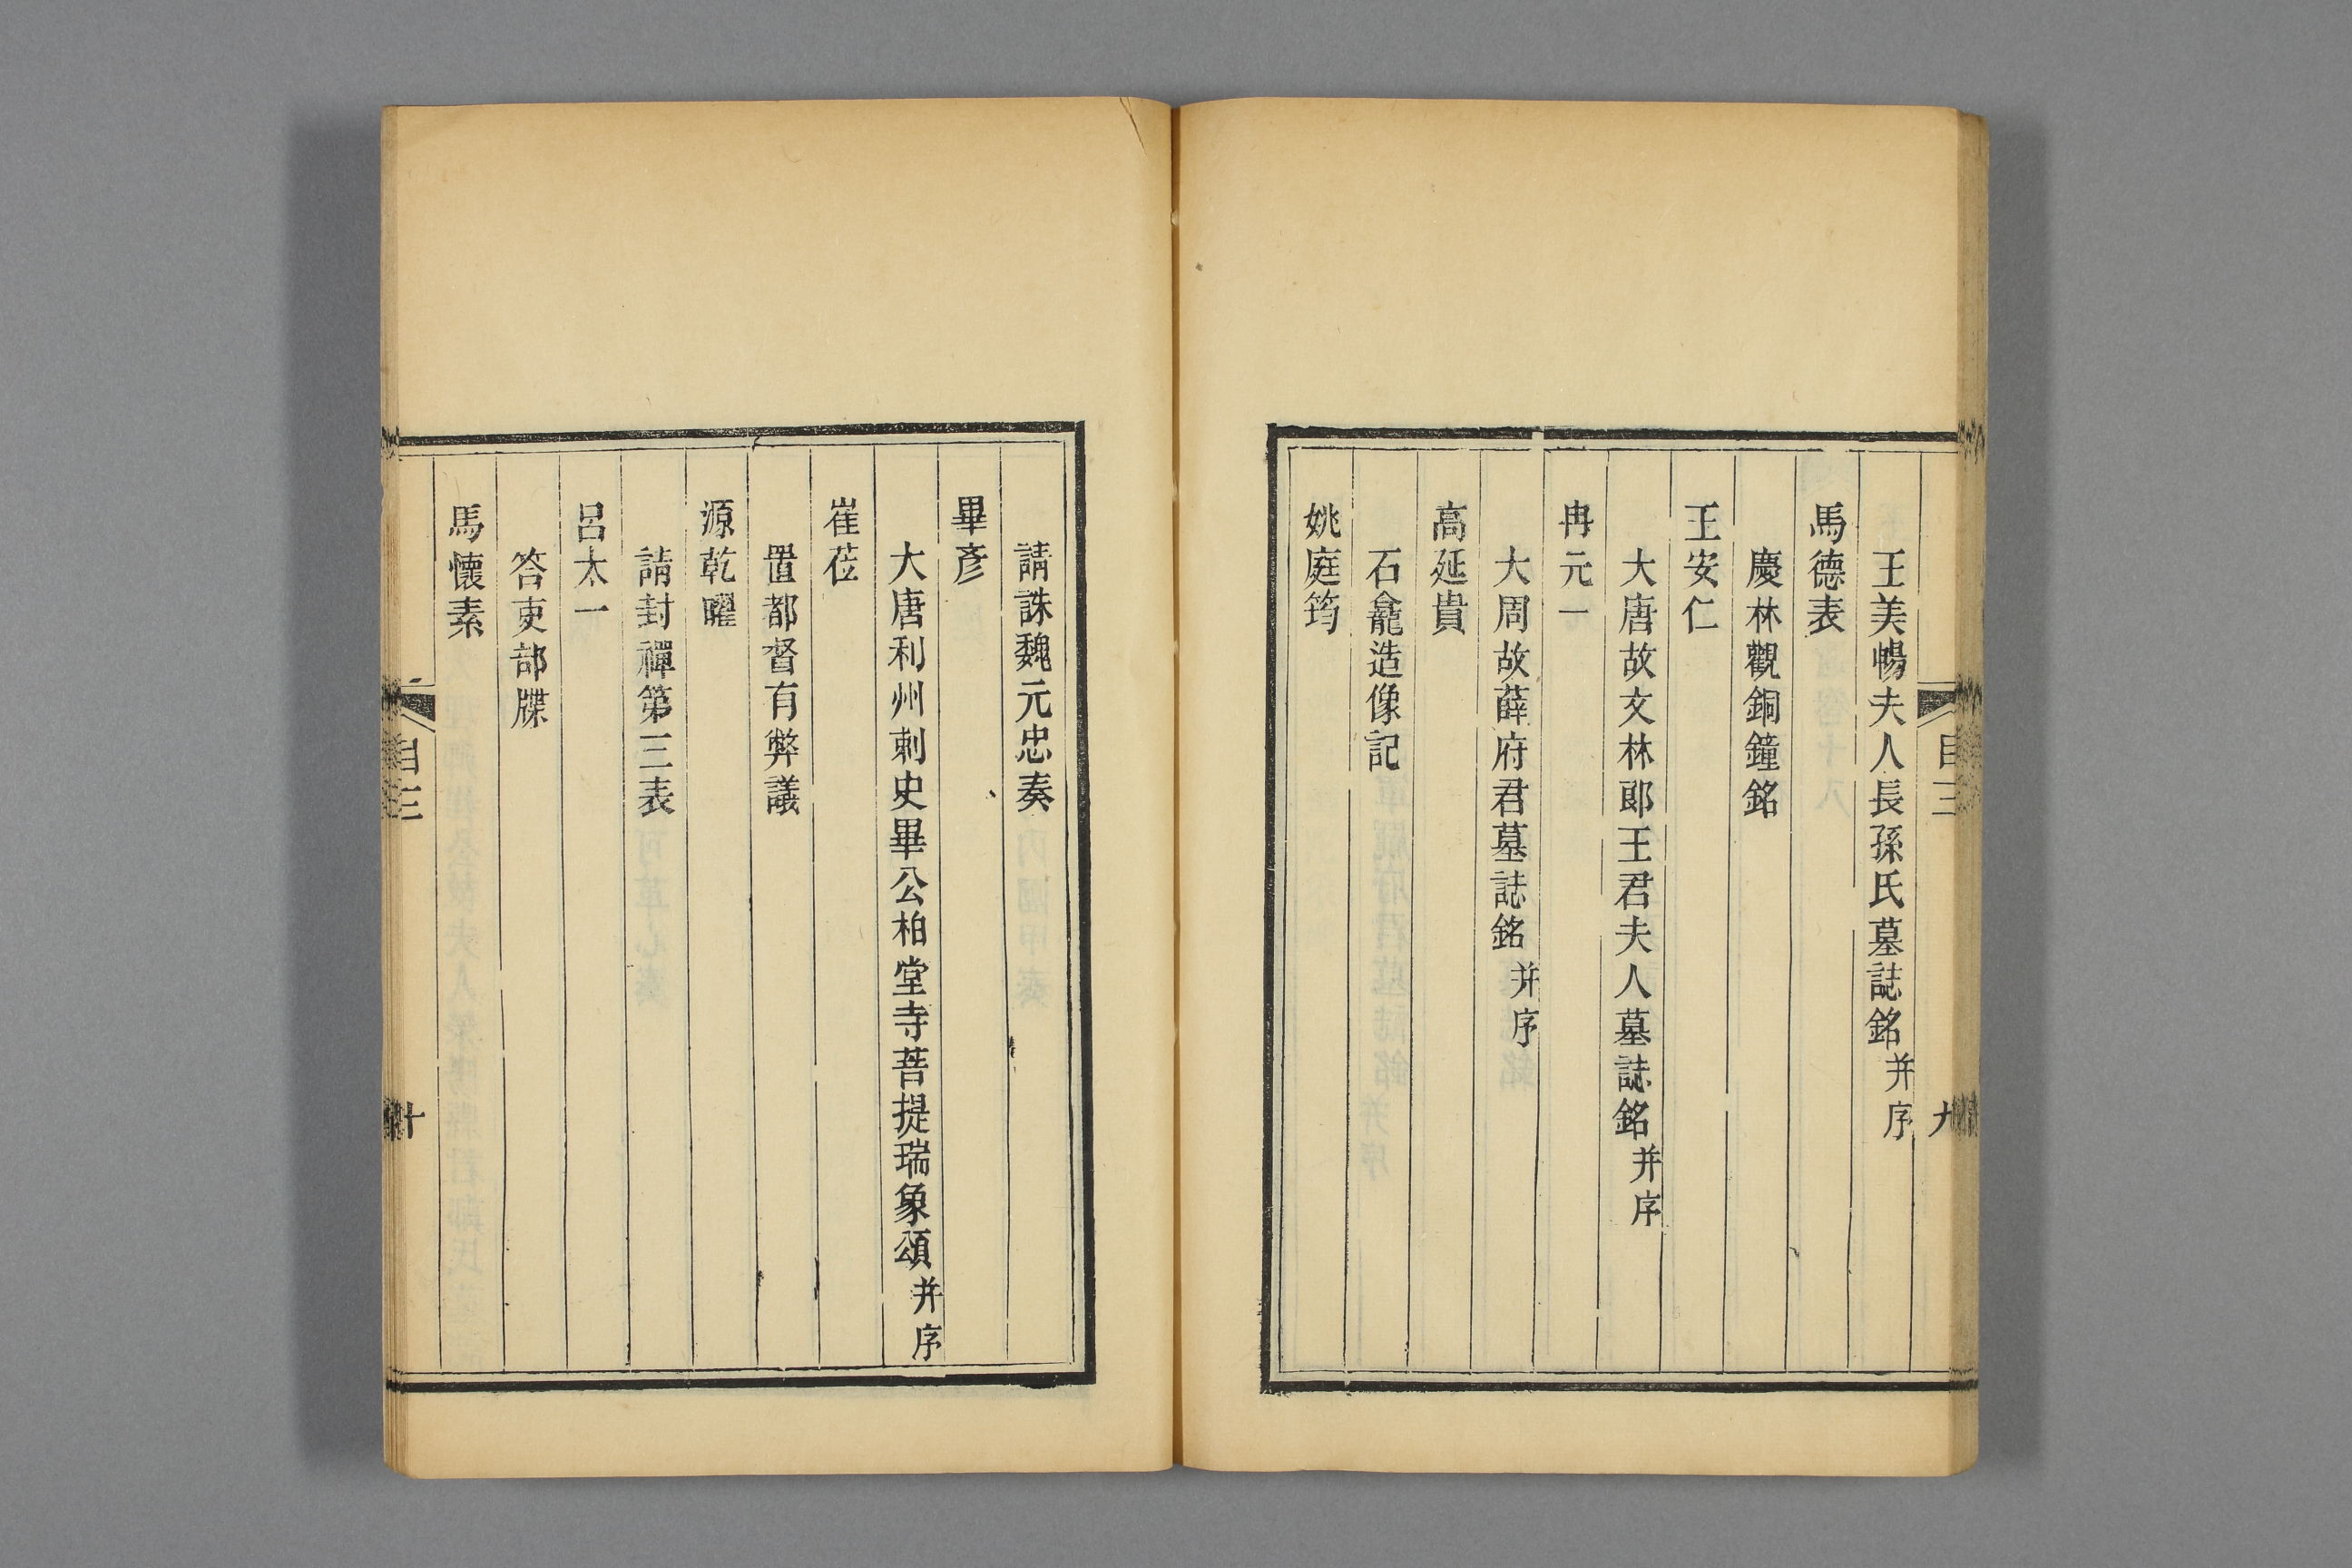 王美暢夫人長孫氏墓誌銘并序
馬德表
慶林觀銅鐘銘
王安仁
大唐故文林郎王君夫人墓誌銘并序
冉元一
大周故薛府君墓誌銘并序
高延貴
石龕造像記
姚庭筠
目三
九
請誅魏元忠奏
畢彥
大唐利州刺史畢公柏堂寺菩提瑞象頌并序
崔莅
置都督有弊議
源乾曜
請封禪第三表
呂太一
答吏部牒
馬懷素
目三
十